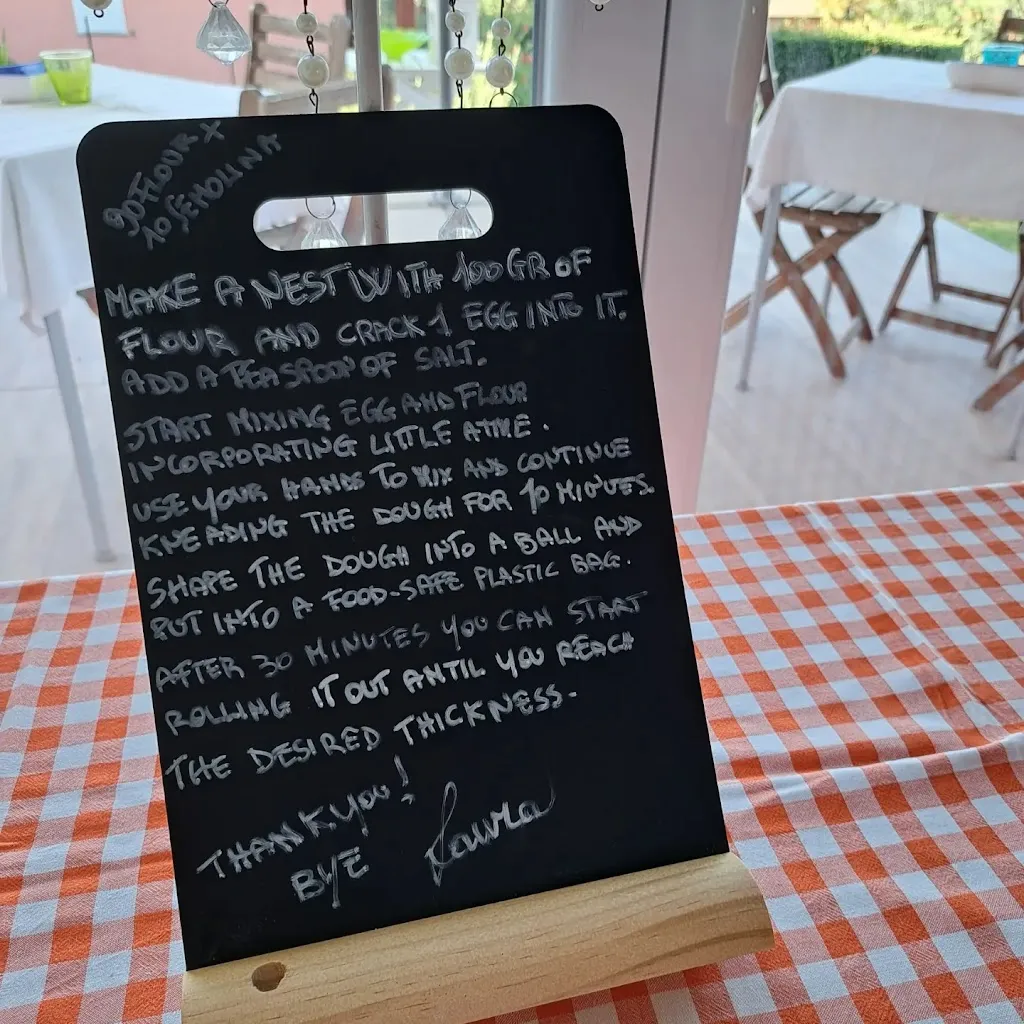 90 FLOUR X
10 SEMOLINA
MAKE A NEST WITH 100 GR OF
FLOUR AND CRACK 1 EGG INTO IT.
ADD A TEASPOON OF SALT.
START MIXING EGG AND FLOUR
INCORPORATING LITTLE A TIME.
USE YOUR HANDS TO MIX AND CONTINUE
KNEADING THE DOUGH FOR 10 MINUTES.
SHAPE THE DOUGH INTO A BALL AND
PUT INTO A FOOD-SAFE PLASTIC BAG.
AFTER 30 MINUTES YOU CAN START
ROLLING IT OUT ANTIL YOU REACH
THE DESIRED THICKNESS.
THANK YOU!
BYE Laura